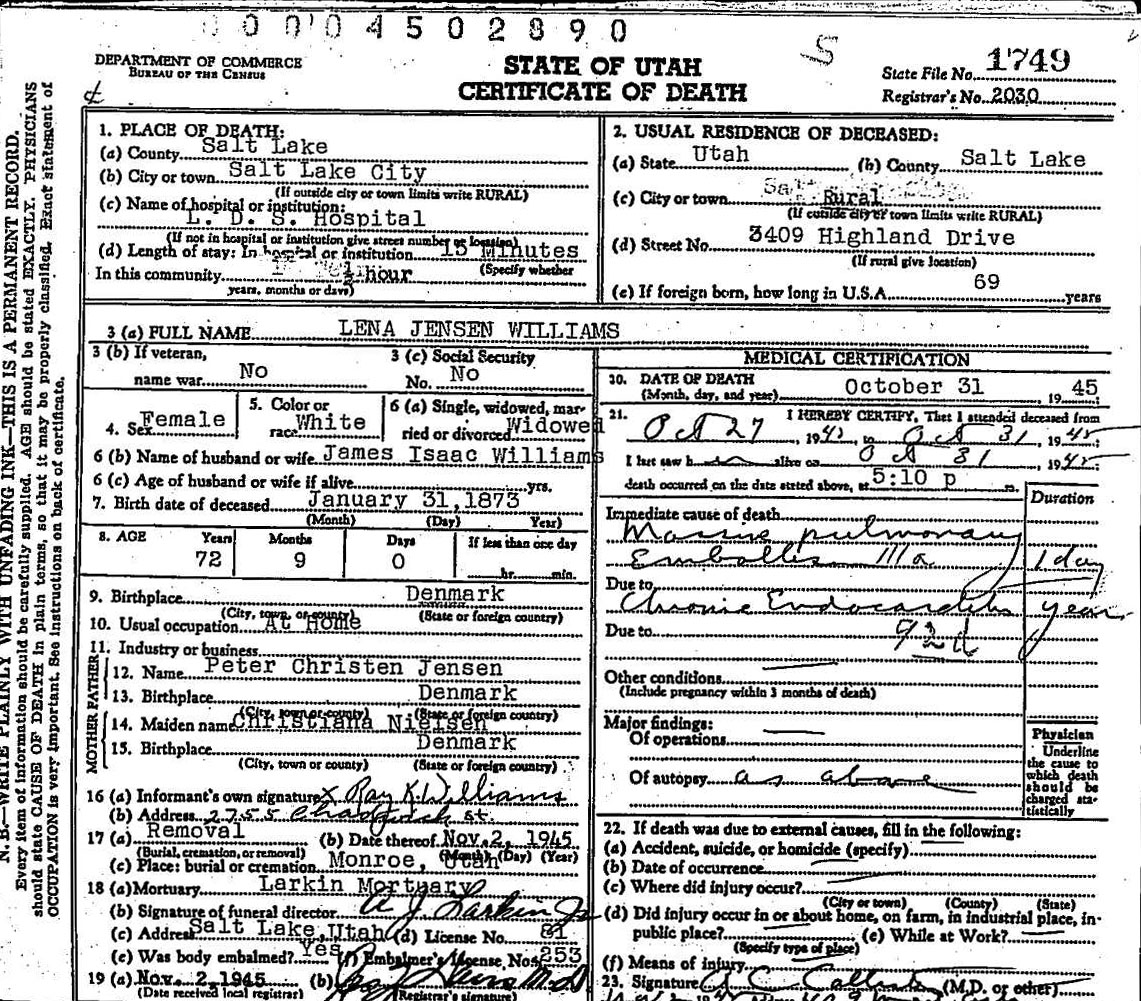 0 0 0 0 4 5 0 2 8 9 0
DEPARTMENT OF COMMERCE
BUREAU OF THE CENSUS
STATE OF UTAH
CERTIFICATE OF DEATH
S
State File No. 1749
Registrar's No. 2030
N. B.—WRITE PLAINLY WITH UNFADING INK—THIS IS A PERMANENT RECORD.
Every item of information should be carefully supplied. AGE should be stated EXACTLY. PHYSICIANS
should state CAUSE OF DEATH in plain terms, so that it may be properly classified. Exact statement of
OCCUPATION is very important. See instructions on back of certificate.
1. PLACE OF DEATH:
(a) County Salt Lake
(b) City or town Salt Lake City
(If outside city or town limits write RURAL)
(c) Name of hospital or institution:
L. D. S. Hospital
(If not in hospital or institution give street number or location)
(d) Length of stay: In hospital or institution 15 Minutes
(Specify whether
In this community hour
years, months or days)
2. USUAL RESIDENCE OF DECEASED:
(a) State Utah (b) County Salt Lake
(c) City or town Rural
(If outside city or town limits write RURAL)
(d) Street No. 3409 Highland Drive
(If rural give location)
(e) If foreign born, how long in U.S.A. 69 years
3 (a) FULL NAME LENA JENSEN WILLIAMS
3 (b) If veteran,
name war No
3 (c) Social Security
No. No
4. Sex Female
5. Color or
race White
6 (a) Single, widowed, mar-
ried or divorced Widowed
6 (b) Name of husband or wife James Isaac Williams
6 (c) Age of husband or wife if alive yrs.
7. Birth date of deceased January 31, 1873
(Month) (Day) Year)
8. AGE Years Months Days If less than one day
72 9 0 hr. min.
9. Birthplace Denmark
(City, town, or county) (State or foreign country)
10. Usual occupation At Home
11. Industry or business
FATHER
12. Name Peter Christen Jensen
13. Birthplace Denmark
(City, town or county) (State or foreign country)
MOTHER
14. Maiden name Christiana Nielsen
15. Birthplace Denmark
(City, town or county) (State or foreign country)
16 (a) Informant's own signature X Ray K. Williams
(b) Address 2755 Chadwick St.
17 (a) Removal (b) Date thereof Nov. 2, 1945
(Burial, cremation, or removal) (Month) (Day) (Year)
(c) Place: burial or cremation Monroe, Utah
18 (a) Mortuary Larkin Mortuary
(b) Signature of funeral director A J Larkin Jr
(c) Address Salt Lake, Utah (d) License No. 81
(e) Was body embalmed? Yes (f) Embalmer's License No. 253
19 (a) Nov. 2, 1945 (b) M.D.
(Date received local registrar) (Registrar's signature)
MEDICAL CERTIFICATION
20. DATE OF DEATH
(Month, day, and year) October 31 19 45
21. I HEREBY CERTIFY, That I attended deceased from
Oct 27, 1945, to Oct 31, 1945;
I last saw h alive on Oct 31 1945;
death occurred on the date stated above, at 5:10 p m.
Duration
Immediate cause of death
Massive pulmonary
Embolus 111a 1 day
Due to
Chronic Endocarditis year
Due to 92d
Other conditions
(Include pregnancy within 3 months of death)
Major findings:
Of operations
Of autopsy as above
Physician
Underline
the cause to
which death
should be
charged sta-
tistically
22. If death was due to external causes, fill in the following:
(a) Accident, suicide, or homicide (specify)
(b) Date of occurrence
(c) Where did injury occur?
(City or town) (County) (State)
(d) Did injury occur in or about home, on farm, in industrial place, in-
public place? (e) While at Work?
(Specify type of place)
(f) Means of injury
23. Signature (M.D. or other)